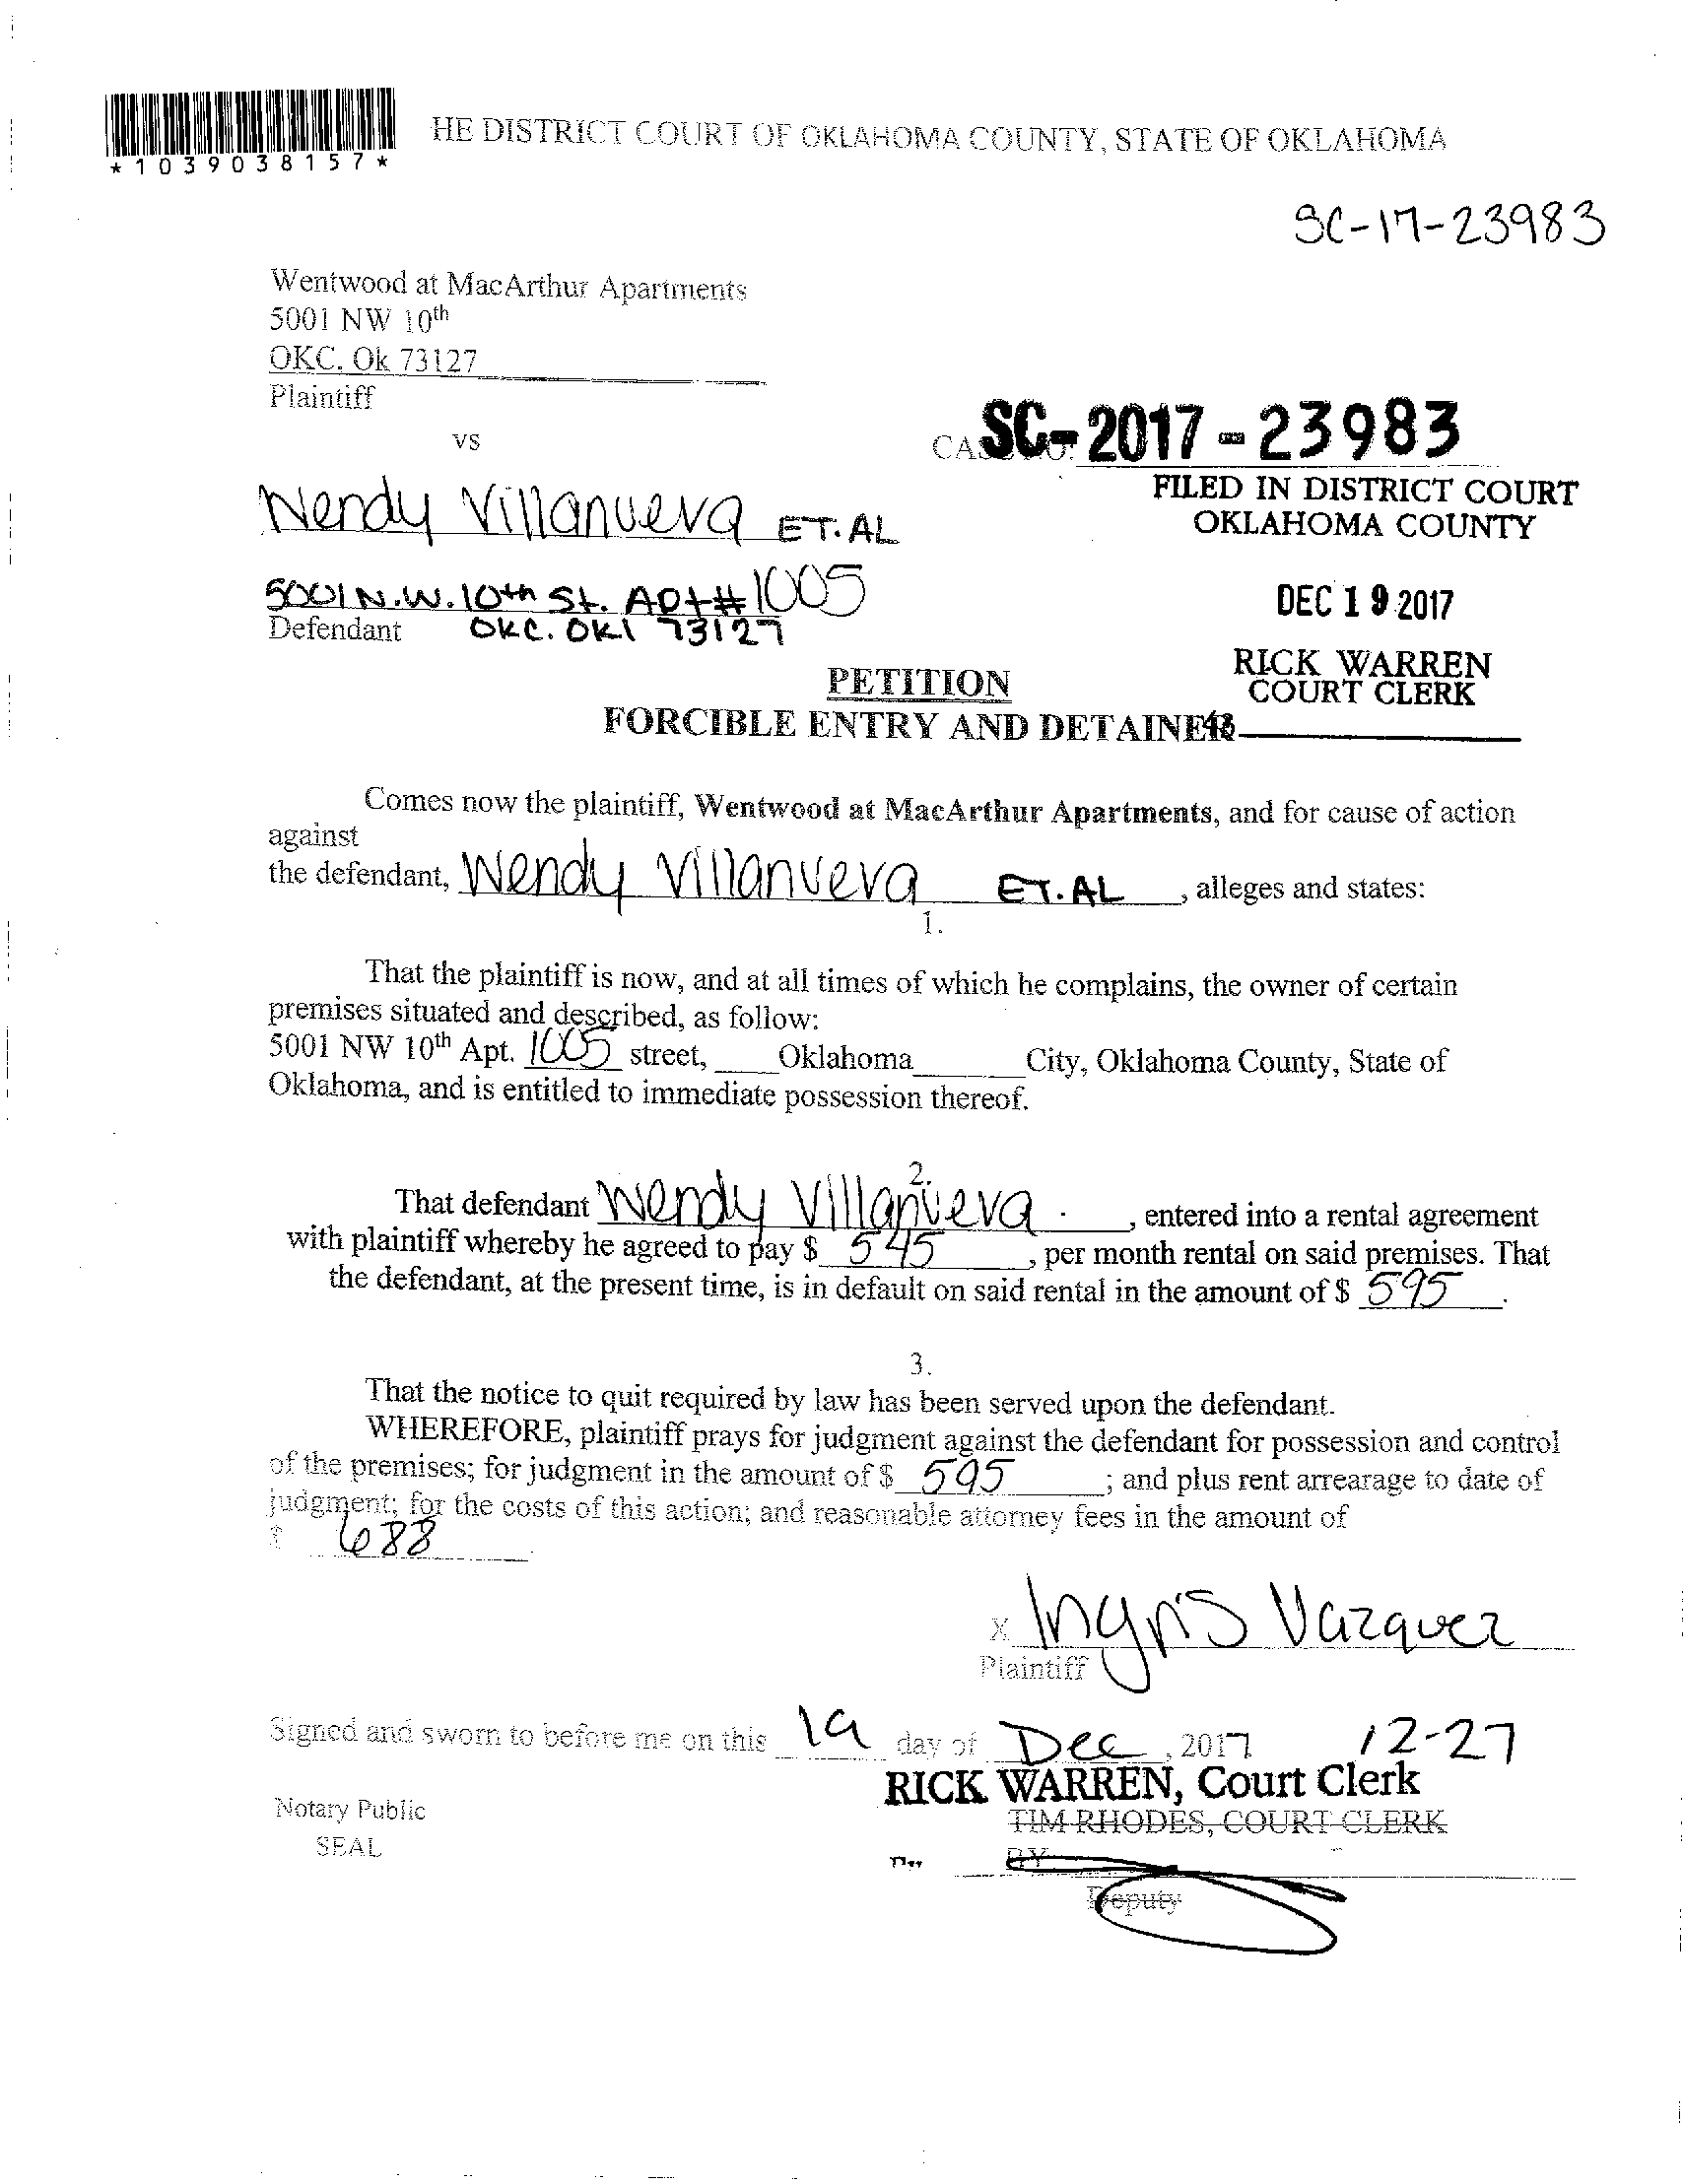 *1039038157*
HE DISTRICT COURT OF OKLAHOMA COUNTY, STATE OF OKLAHOMA
SC-17-23983
Wentwood at MacArthur Apartments
5001 NW 10th
OKC. Ok 73127
Plaintiff
vs
SC-2017-23983
Wendy Villanueva ET.AL
FILED IN DISTRICT COURT
OKLAHOMA COUNTY
5001 N.W. 10th St. Apt# 1005
Defendant OKC. OKl 73127
DEC 19 2017
RICK WARREN
COURT CLERK
PETITION
FORCIBLE ENTRY AND DETAINER
Comes now the plaintiff, Wentwood at MacArthur Apartments, and for cause of action
against
the defendant, Wendy Villanueva ET.AL, alleges and states:
1.
That the plaintiff is now, and at all times of which he complains, the owner of certain
premises situated and described, as follow:
5001 NW 10th Apt. 1005 street, Oklahoma City, Oklahoma County, State of
Oklahoma, and is entitled to immediate possession thereof.
2.
That defendant Wendy Villanueva, entered into a rental agreement
with plaintiff whereby he agreed to pay $ 545, per month rental on said premises. That
the defendant, at the present time, is in default on said rental in the amount of $ 595.
3.
That the notice to quit required by law has been served upon the defendant.
WHEREFORE, plaintiff prays for judgment against the defendant for possession and control
of the premises; for judgment in the amount of $ 595; and plus rent arrearage to date of
judgment; for the costs of this action; and reasonable attorney fees in the amount of
$ 688
x Ingris Vazquez
Plaintiff
Signed and sworn to before me on this 19 day of Dec, 2017 12-27
RICK WARREN, Court Clerk
Notary Public
TIM RHODES, COURT CLERK
SEAL
BY
Deputy